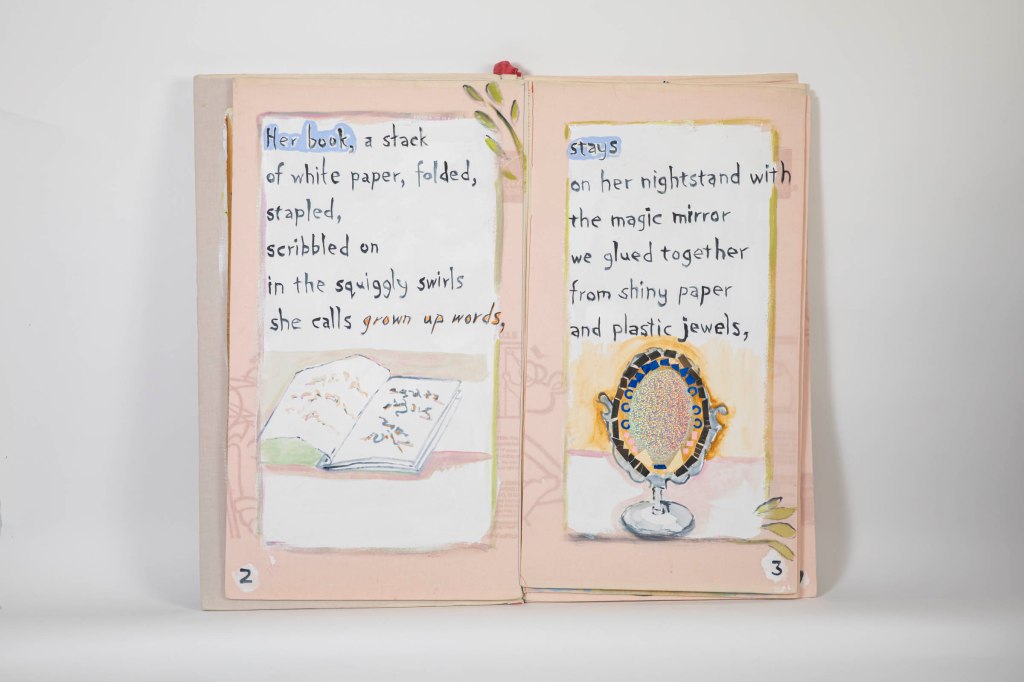 Her book, a stack
of white paper, folded,
stapled,
scribbled on
in the squiggly swirls
she calls grown up words,
2
stays
on her nightstand with
the magic mirror
we glued together
from shiny paper
and plastic jewels,
3